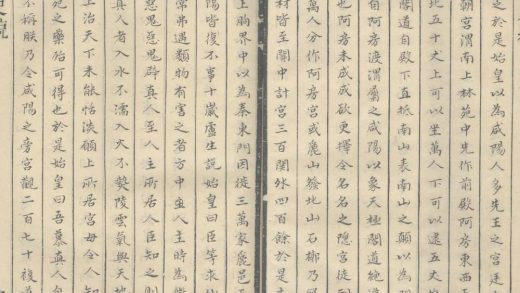 之於是始皇以為咸陽人多先王之宮廷
朝宮渭南上林苑中先作前殿阿房東西
北五十丈上可以坐萬人下可以建五丈
閣道自殿下直抵南山表南山之顛以為
自阿房渡渭屬之咸陽以象天極閣道絕
也阿房未成成欲更擇令名名之隱宮徒
萬人分作阿房宮或麗山發北山石槨乃
材皆至關中計宮三百關外四百餘於是
上朐界中以為秦東門因徙三萬家麗邑
陽皆復不事十歲盧生說始皇曰臣等求
常弗遇類物有害之者方中人主時為
惡鬼惡鬼辟真人至人主所居人臣知之則
真人者入水不濡入火不爇陵雲氣與天
上治天下未能恬淡願上所居宮毋令人知
之藥殆可得也於是始皇曰吾慕真人自
不稱朕乃令咸陽之旁宮觀二百七十復道